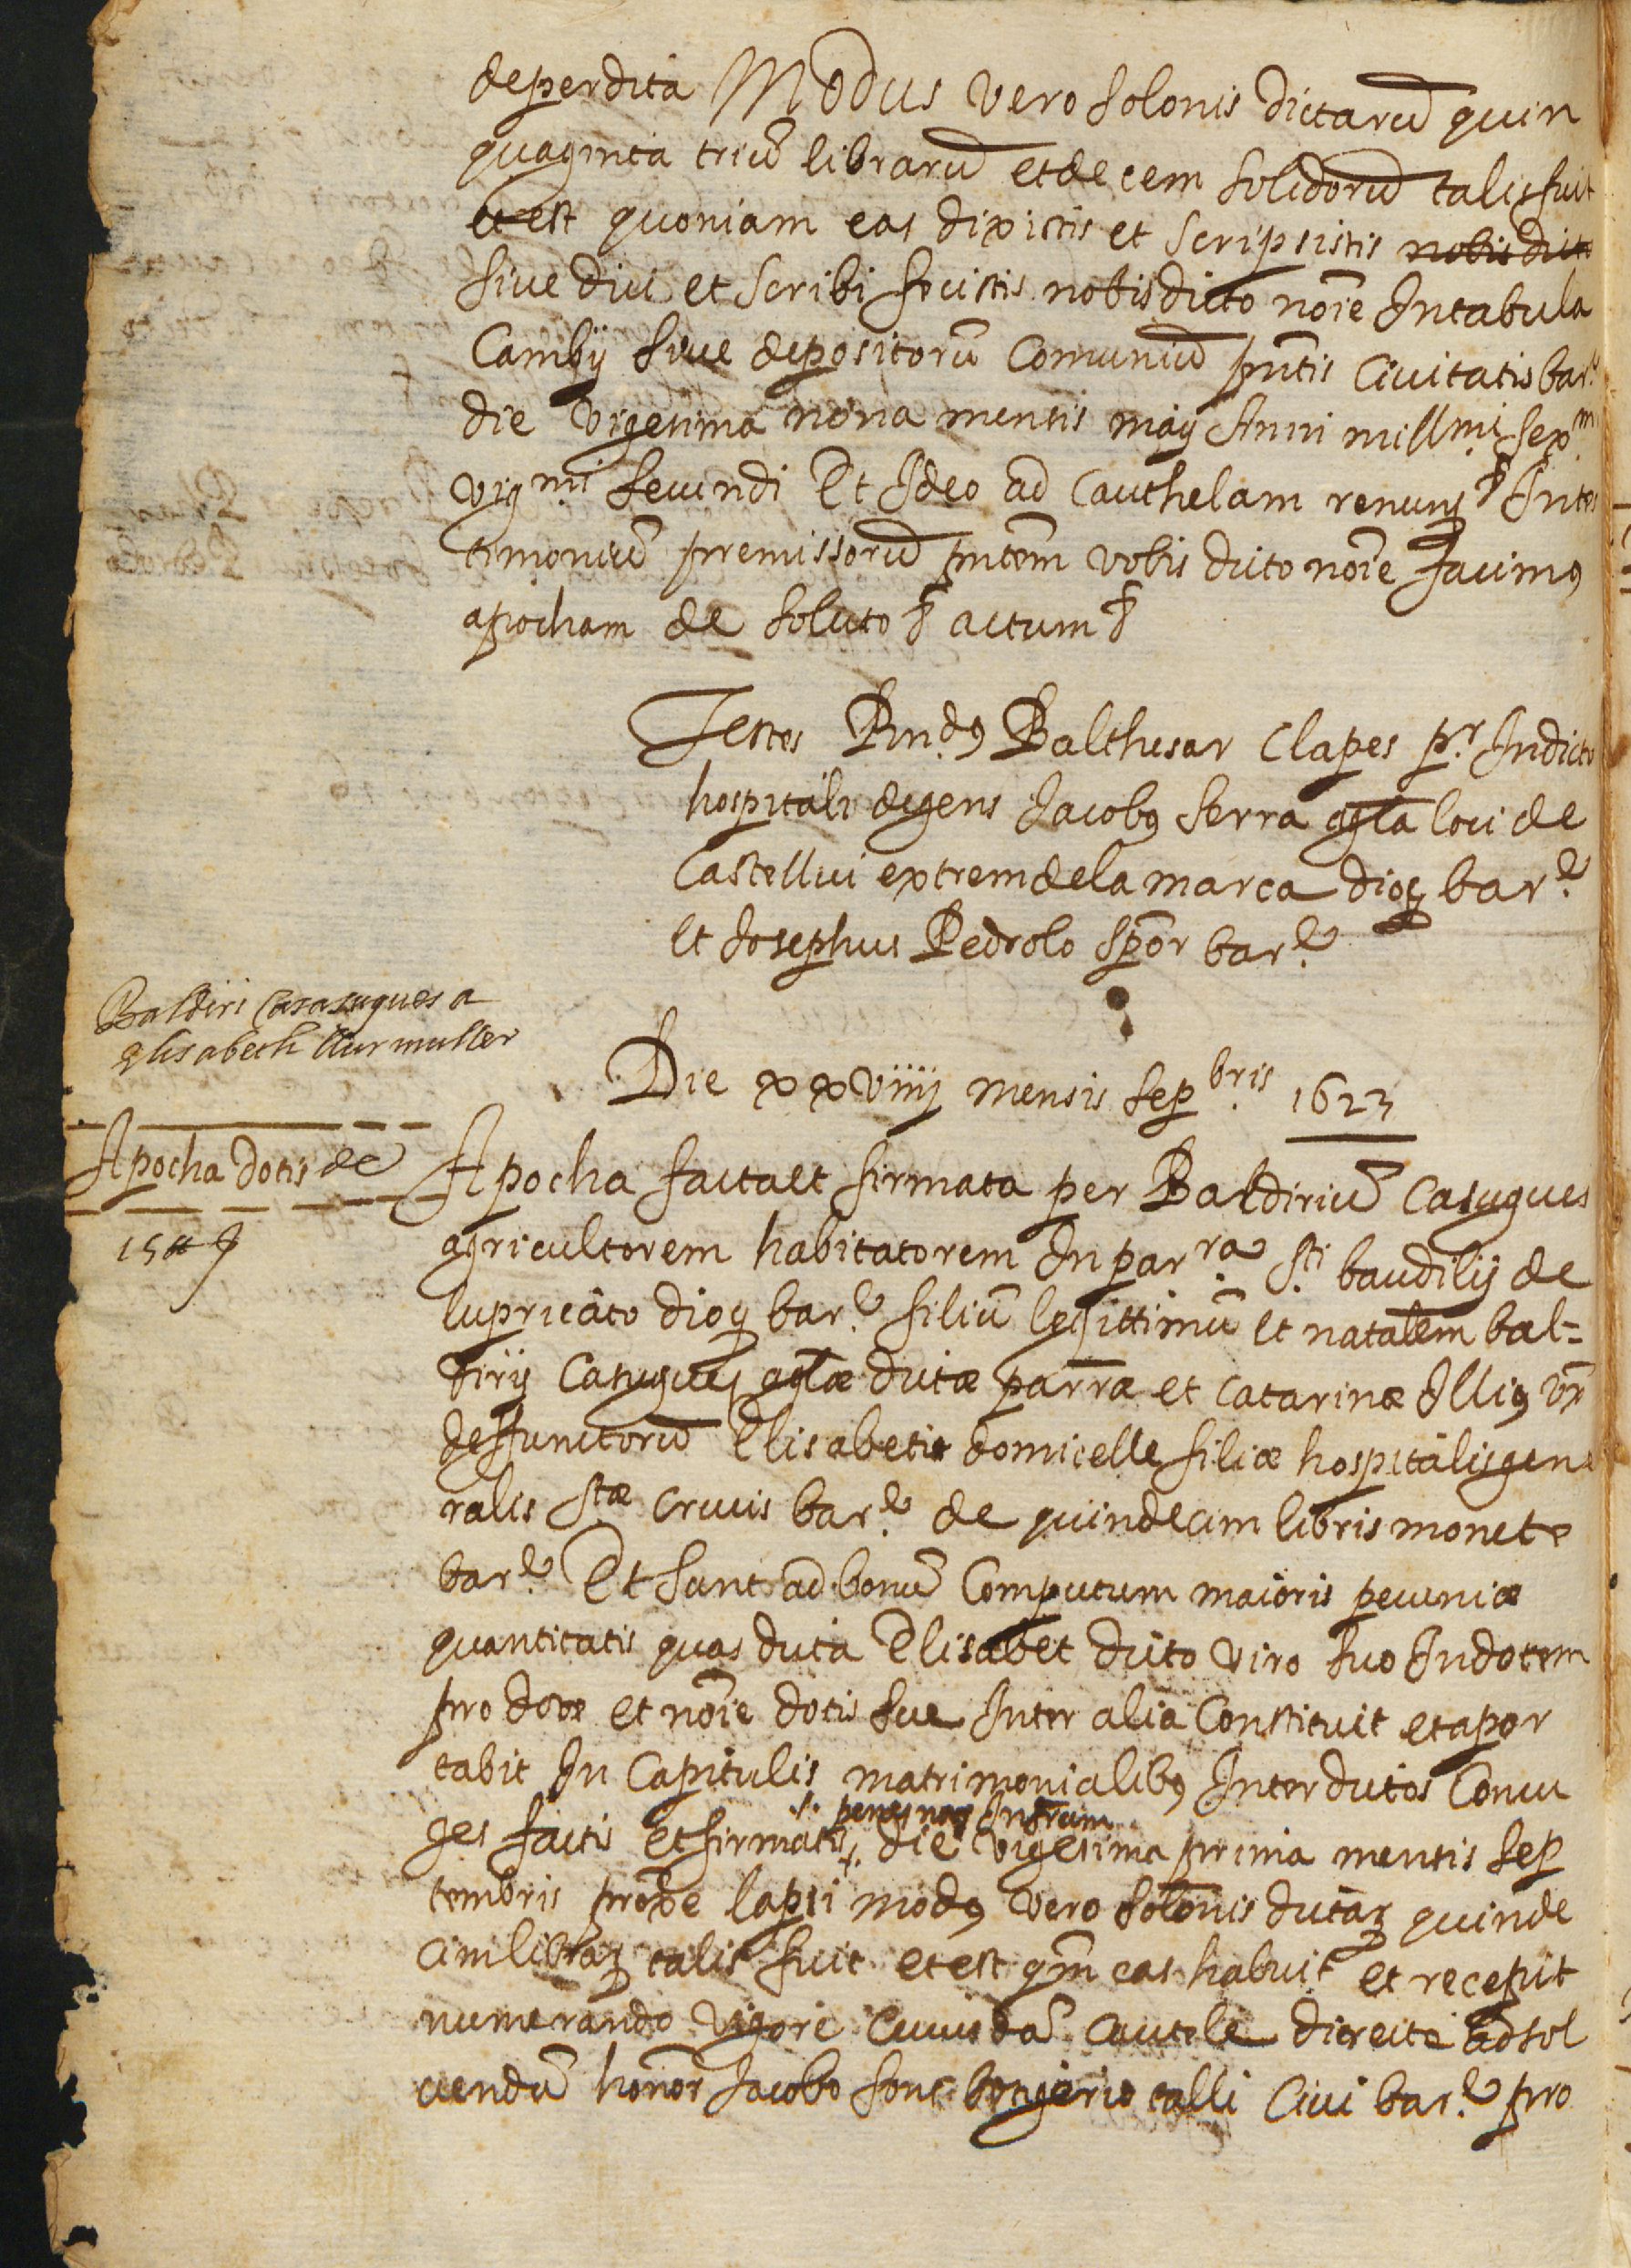 deperdita Modus vero solonis dictarū quin
quaginta triū librarū et decem solidorū talis fuit
et est quoniam eas dixistis et scripsistis nobis dicto
sive dici et scribi fecistis nobis dicto noīe In tabula
Cambij sive depositorū Comuniū pntis Civitatis barẽ
die vigesima nona mensis maij Anni millmi. sexmi
vigmi secundi Et Ideo ad Cauthelam renuns &ᵃ In tes
timoniū premissorū pntem vobis dicto noīe facimꝰ
apocham de soluto &ᵃ actum &ᵃ
Testes Rndꝰ Balthesar Clapes pr. In dicto
hospitali degens Jacobꝰ Serra agla loci de
Castellvi extrem de la marca dioc barẽ
et Josephus Pedrolo spor barẽ
Baldiri Casasugues a
elisabeth llur muller
Die xxviiij mensis sepbris 1623
Apocha dotis de
15 ll ȷ
Apocha facta et firmata per Baldiriū Casugues
agricultorem habitatorem In parra. sti. baudilij de
lupricato dioc barẽ filiū legittimū et natalem bal=
dirij Casugues aglæ dictæ parræ et Catarinæ Illiꝰ vx̄
deffunctorū Elisabetis domicelle filiæ hospitalis gene
ralis stæ crucis barẽ de quindecim libris monete
barẽ Et sunt ad bonū Computum maioris pecuniæ
quantitatis quas dicta Elisabet dicto viro suo In dotem
pro dote et noīe dotis sue Inter alia Constituit et apor
tabit In Capitulis matrimonialibꝰ Inter dictos Coniu
ges factis et firmatis ./. penes not Infrum ./. die vigesima prima mensis sep
tembris proxe lapsi modꝰ vero solonis dictaꝝ quinde
cim libraꝝ talis fuit et est qm eas habuit et recepit
numerando vigore Cuiusdā Cautele directe ad sol
vendū honor Jacobo fonc berngerio talli Civi barẽ pro